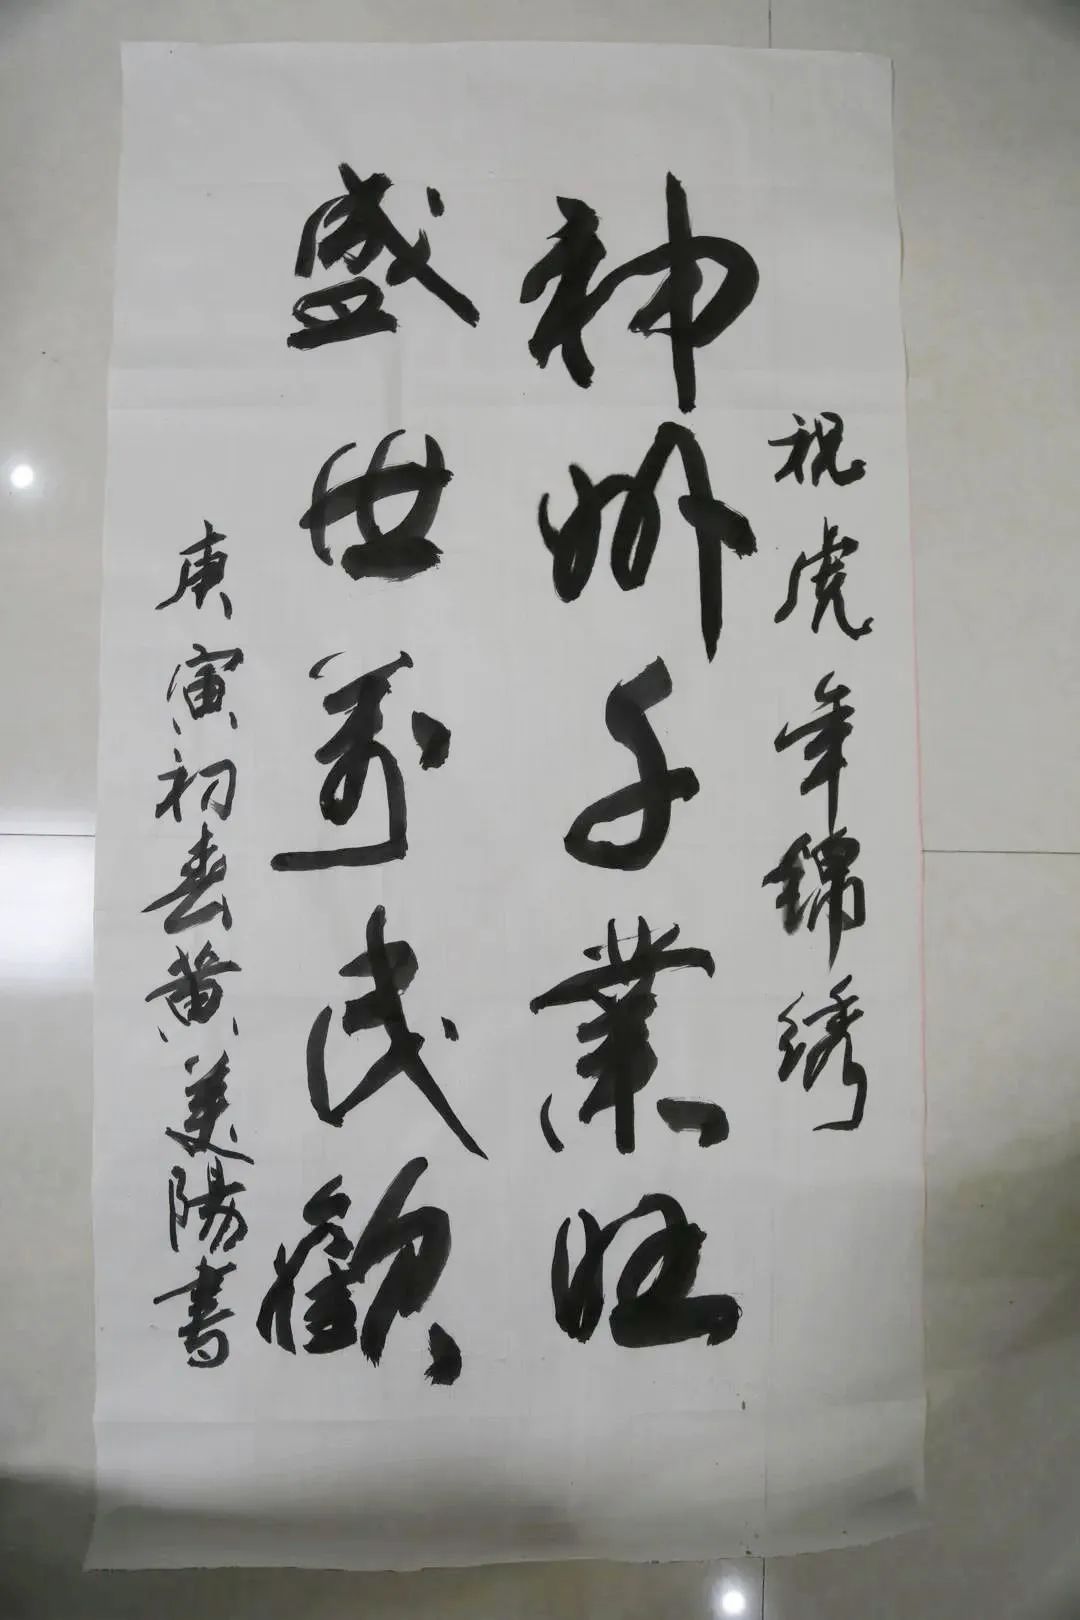 祝虎年锦绣
神州千業旺
盛世萬民歡
庚寅初春黄美陽書